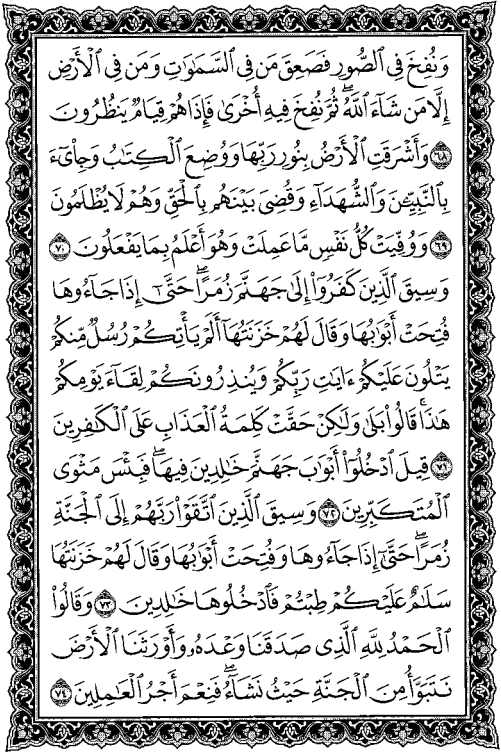 وَنُفِخَ فِي ٱلصُّورِ فَصَعِقَ مَن فِي ٱلسَّمَٰوَٰتِ وَمَن فِي ٱلْأَرْضِ
إِلَّا مَن شَآءَ ٱللَّهُ ۖ ثُمَّ نُفِخَ فِيهِ أُخْرَىٰ فَإِذَا هُمْ قِيَامٌ يَنظُرُونَ
٦٨ وَأَشْرَقَتِ ٱلْأَرْضُ بِنُورِ رَبِّهَا وَوُضِعَ ٱلْكِتَٰبُ وَجِا۟ىٓءَ
بِٱلنَّبِيِّۦنَ وَٱلشُّهَدَآءِ وَقُضِيَ بَيْنَهُم بِٱلْحَقِّ وَهُمْ لَا يُظْلَمُونَ
٦٩ وَوُفِّيَتْ كُلُّ نَفْسٍ مَّا عَمِلَتْ وَهُوَ أَعْلَمُ بِمَا يَفْعَلُونَ ٧٠
وَسِيقَ ٱلَّذِينَ كَفَرُوٓا۟ إِلَىٰ جَهَنَّمَ زُمَرًا ۖ حَتَّىٰٓ إِذَا جَآءُوهَا
فُتِحَتْ أَبْوَٰبُهَا وَقَالَ لَهُمْ خَزَنَتُهَآ أَلَمْ يَأْتِكُمْ رُسُلٌ مِّنكُمْ
يَتْلُونَ عَلَيْكُمْ ءَايَٰتِ رَبِّكُمْ وَيُنذِرُونَكُمْ لِقَآءَ يَوْمِكُمْ
هَٰذَا ۚ قَالُوا۟ بَلَىٰ وَلَٰكِنْ حَقَّتْ كَلِمَةُ ٱلْعَذَابِ عَلَى ٱلْكَٰفِرِينَ
٧١ قِيلَ ٱدْخُلُوٓا۟ أَبْوَٰبَ جَهَنَّمَ خَٰلِدِينَ فِيهَا ۖ فَبِئْسَ مَثْوَى
ٱلْمُتَكَبِّرِينَ ٧٢ وَسِيقَ ٱلَّذِينَ ٱتَّقَوْا۟ رَبَّهُمْ إِلَى ٱلْجَنَّةِ
زُمَرًا ۖ حَتَّىٰٓ إِذَا جَآءُوهَا وَفُتِحَتْ أَبْوَٰبُهَا وَقَالَ لَهُمْ خَزَنَتُهَا
سَلَٰمٌ عَلَيْكُمْ طِبْتُمْ فَٱدْخُلُوهَا خَٰلِدِينَ ٧٣ وَقَالُوا۟
ٱلْحَمْدُ لِلَّهِ ٱلَّذِي صَدَقَنَا وَعْدَهُۥ وَأَوْرَثَنَا ٱلْأَرْضَ
نَتَبَوَّأُ مِنَ ٱلْجَنَّةِ حَيْثُ نَشَآءُ ۖ فَنِعْمَ أَجْرُ ٱلْعَٰمِلِينَ ٧٤